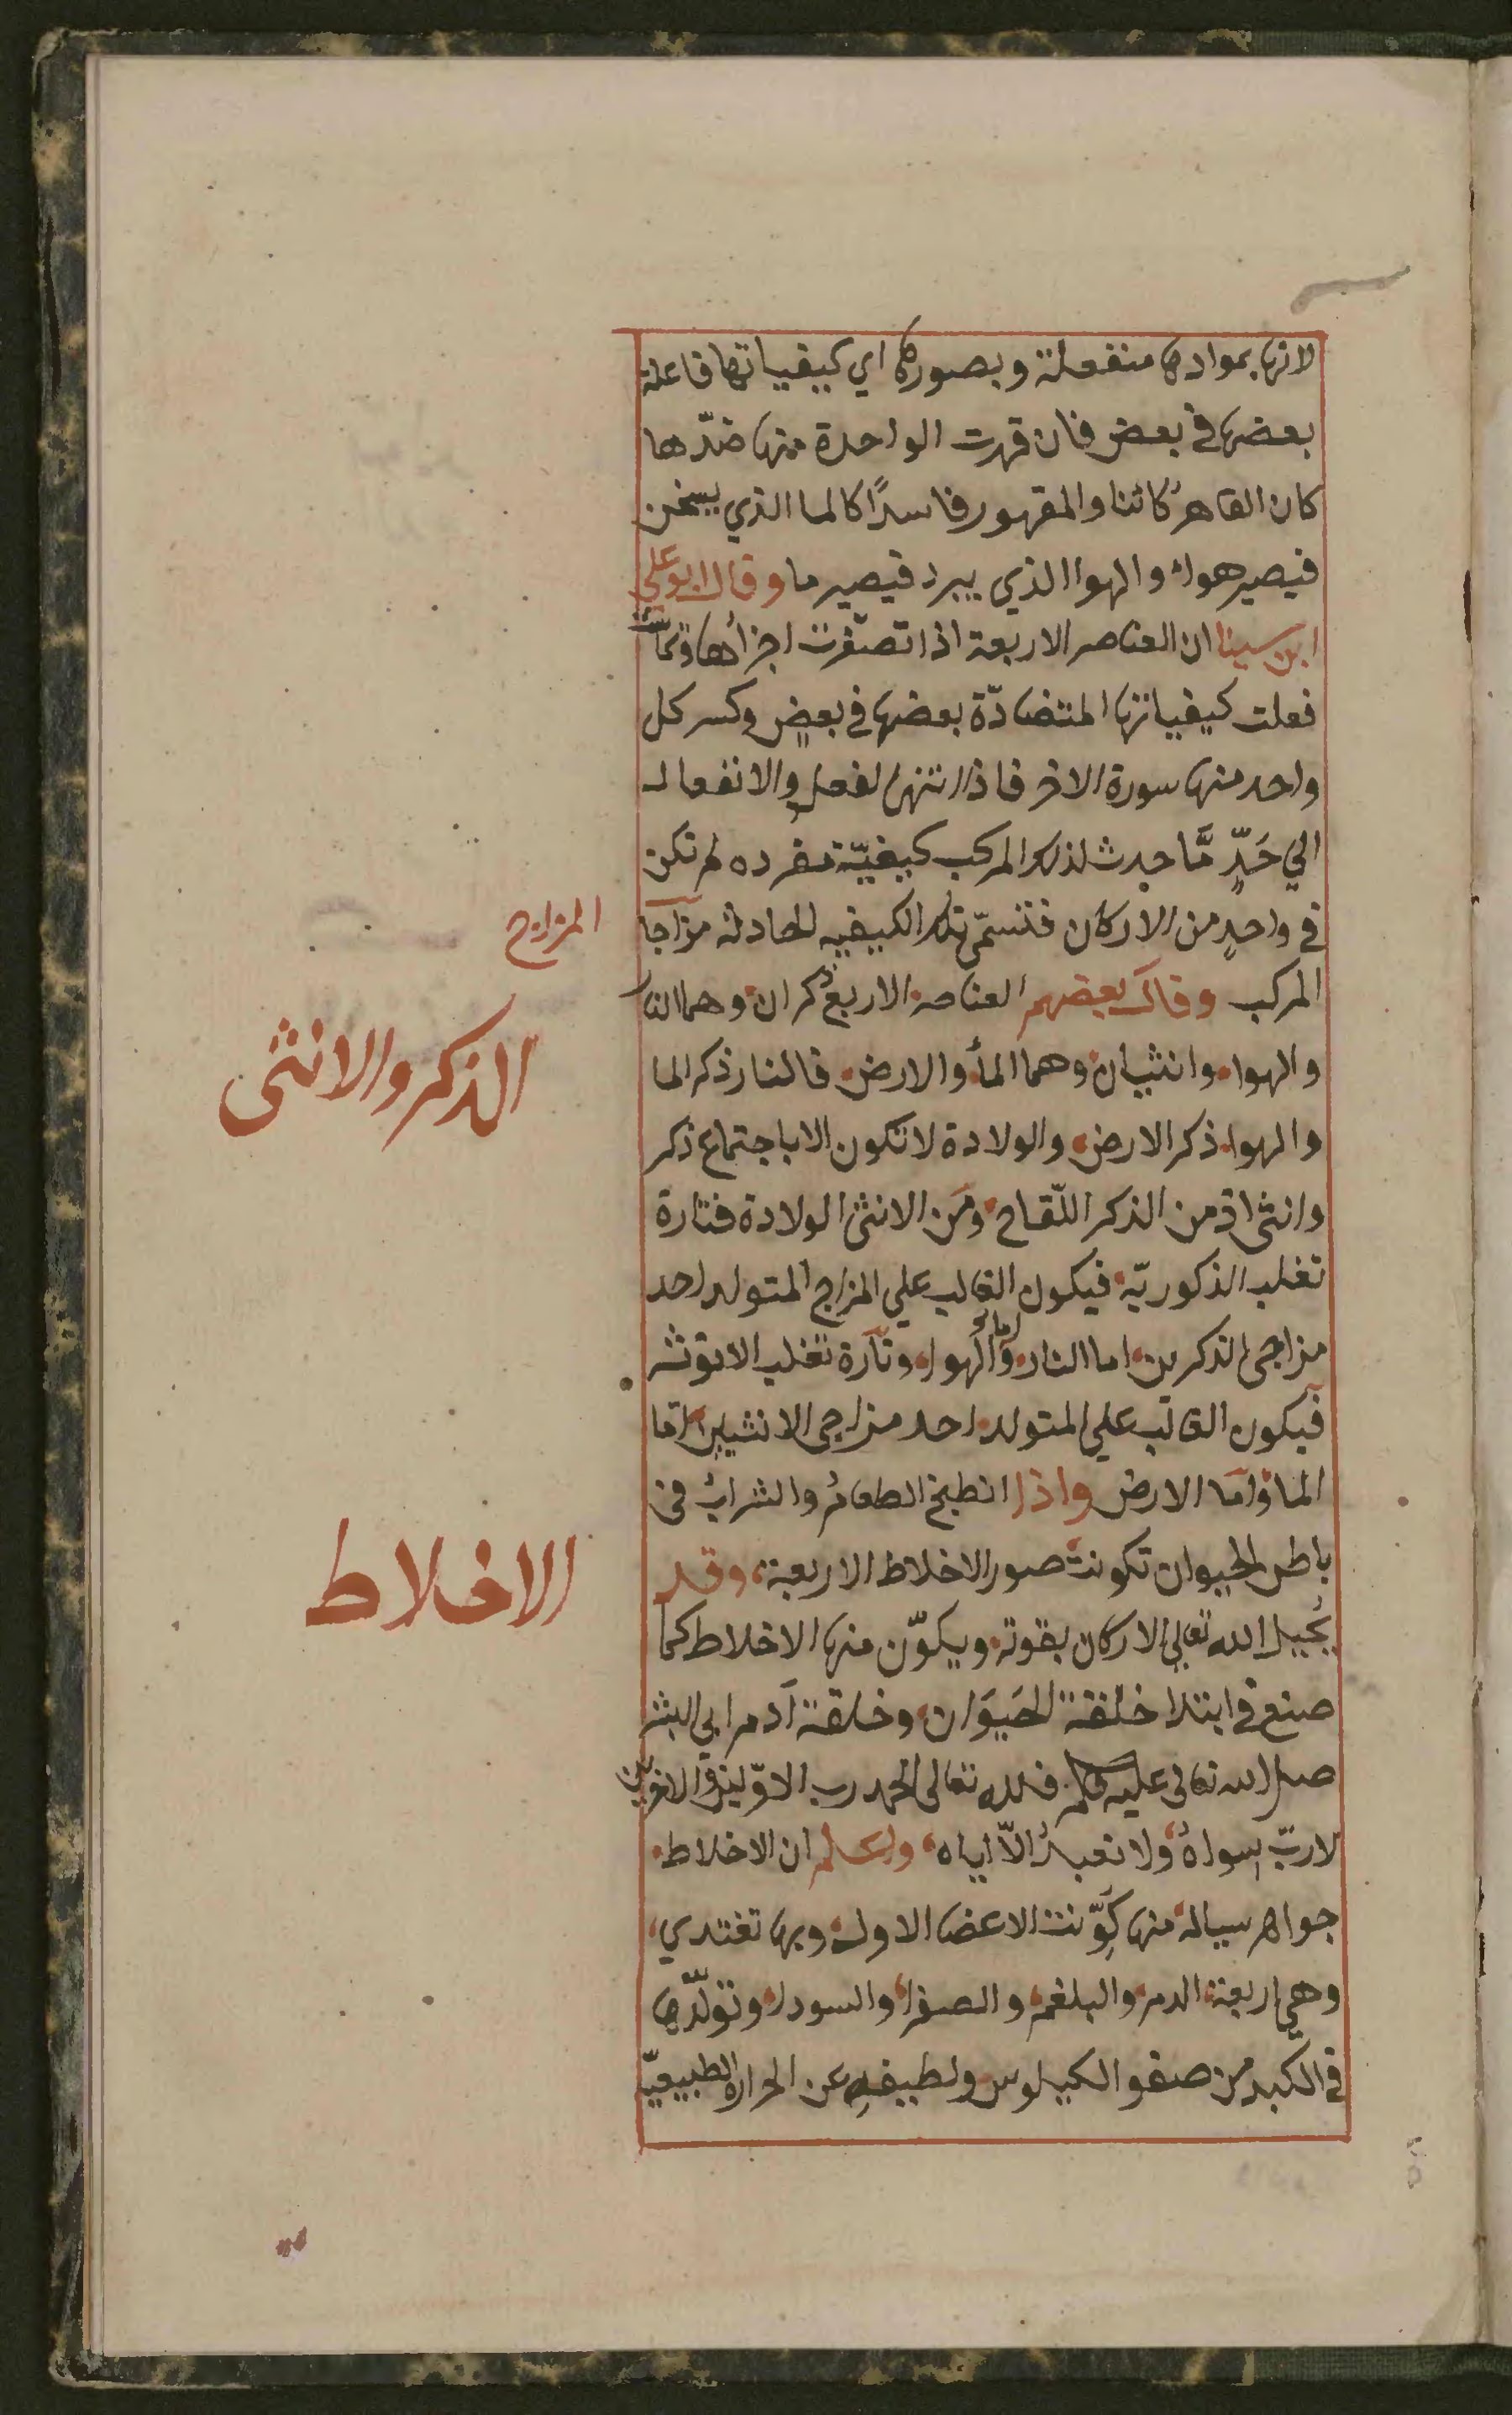 لانها بموادها منفعلة وبصورها اي كيفياتها فاعلة
بعضها في بعض فان قهرت الواحدة منها ضدّها
كان القاهر كائنا والمقهور فاسدًا كالما الذي يسخن
فيصير هواء والهوا الذي يبرد فيصير ما وقال ابو علي
ابن سينا ان العناصر الاربعة اذا تصغرت اجزاؤها وتماسّت
فعلت كيفياتها المتضادّة بعضها في بعضٍ وكسر كل
واحد منها سورة الاخر فاذا انتهى الفعل والانفعال
الي حَدٍّ مَّا حدث لذلك المركب كيفيّة مفرده لم تكن
في واحدٍ من الاركان فتسمّى تلك الكيفيه الحادثة مزاجا
المزاج
المركب وقال بعضهم العناصر الاربع ذكران وهما النار
الذكر والانثى
والهوا وانثيان وهما المأ والارض فالنار ذكر الما
والهوا ذكر الارض والولادة لا تكون الا باجتماع ذكر
وانثى اذ من الذكر اللّقاح ومن الانثى الولادة فتارة
تغلب الذكوريّة فيكون الغالب علي المزاج المتولد احد
مزاجي الذكرين اما النار واما الهوا وتارة تغلب الانوثه
فيكون الغالب علي المتولد احد مزاجي الانثيين اما
الما واما الارض واذا انطبخ الطعام والشراب في
باطن الحيوان تكونت صور الاخلاط الاربعة، وقد
الاخلاط
يُحيل الله تعالي الاركان بقوته ويكوّن منها الاخلاط كما
صنع في ابتدا خلقة الحَيَوَان وخلقة آدم ابي البشر
صلى الله تعالى عليه وسلم فلله تعالى الحمد رب الاوّلين والاخرين
لا ربّ سواهُ ولا نعبدُ الاّ اياه، واعلم ان الاخلاط
جواهر سيالة منها كوّنت الاعضا الاولة وبها تغتدي،
وهي اربعة الدم والبلغم والصفرا والسودا وتولّدها
في الكبد من صفو الكيلوس ولطيفهِ عن الحرارة الطبيعيّة